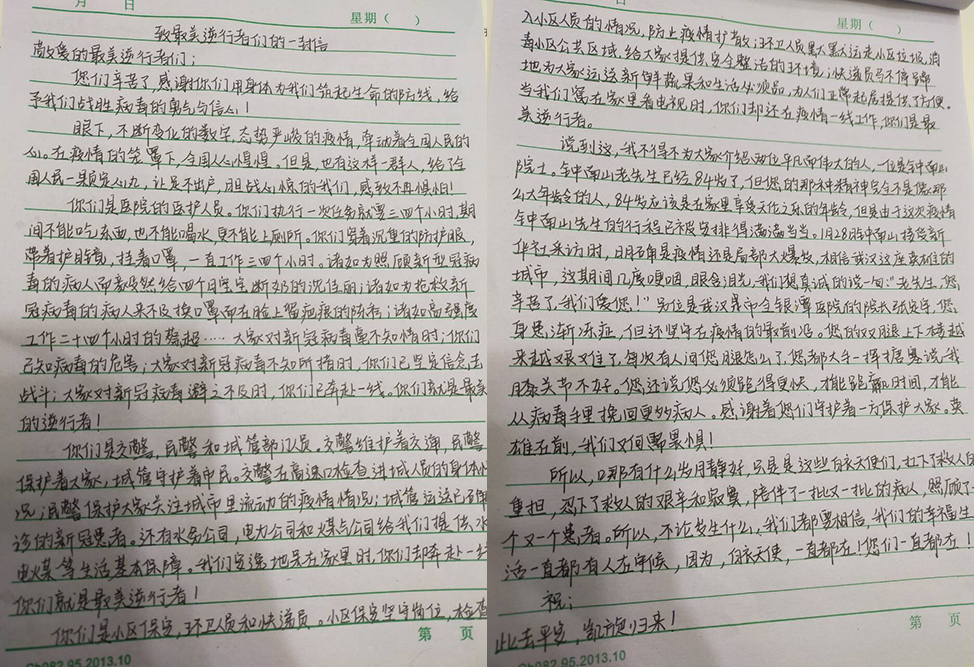 月 日
星期( )
致最美逆行者们的一封信
敬爱的最美逆行者们:
您们辛苦了,感谢你们用身体为我们筑起生命的防线,给
予我们战胜病毒的勇气与信心!
眼下,不断变化的数字,态势严峻的疫情,牵动着全国人民的
心。在疫情的笼罩下,全国人心惶惶。但是,也有这样一群人,给了全
国人民一颗定心丸,让足不出户,胆战心惊的我们,感到不再惧怕!
你们是医院的医护人员。你们执行一次任务就需三四个小时,期
间不能吃东西,也不能喝水,更不能上厕所。你们穿着沉重的防护服,
带着护目镜,挂着口罩,一直工作三四个小时。诸如为照顾新型冠病
毒的病人而毅然给四个月宝宝断奶的沈佳丽;诸如为抢救新
冠病毒的病人来不及换口罩而在脸上留疤痕的陈科;诸如高强度
工作二十四个小时的楚超……大家对新冠病毒毫不知情时;你们
已知病毒的危害;大家对新冠病毒不知所措时,你们已坚定信念去
战斗;大家对新冠病毒避之不及时,你们已奔赴一线。你们就是最美
的逆行者!
你们是交警,民警和城管部门人员。交警维护着交通,民警
保护着大家,城管守护着市民。交警在高速口检查进城人员的身体情
况;民警保护大家关注城市里流动的疫情情况;城管运送已确
诊的新冠患者。还有水务公司,电力公司和煤气公司给我们提供水
电煤等生活基本保障。我们安逸地呆在家里时,你们却奔赴一线
你们就是最美逆行者!
你们是小区保安,环卫人员和快递员。小区保安坚守岗位,检查
第 页
95.2013.10
入小区人员的情况,防止疫情扩散;环卫人员黑天黑运走小区垃圾,消
毒小区公共区域,给大家提供安全整洁的环境;快递员马不停蹄
地为大家运送新鲜蔬果和生活必须品,为人们正常起居提供了方便。
当我们窝在家里看电视时,你们却还在疫情一线工作,你们是最
美逆行者。
说到这,我不得不为大家介绍两位平凡而伟大的人,一位是钟南山
院士。钟南山老先生已经84岁了,但您的那种精神完全不是像那
么大年龄的人,84岁应该是在家里享受天伦之乐的年龄,但是由于这次疫情
钟南山先生的行程已被安排得满满当当。1月28日钟南山接受新
华社采访时,明确是疫情还是局部大爆发,相信武汉这座英雄的
城市,这期间几度哽咽,眼含泪光,我们想真诚的说一句:"老先生,您
辛苦了,我们爱您!"另位是武汉市金银潭医院的院长张定宇,您
身患渐冻症,但还坚守在疫情的最前沿。您的双腿上下楼越
来越艰难了,每次有人问您腿怎么了,您都大手一挥搪塞说,我
膝关节不好。您还说,您必须跑得更快,才能跑赢时间,才能
从病毒手里挽回更多病人。感谢着您们守护着一方保护大家。英
雄在前,我们又何需畏惧!
所以,哪有什么岁月静好,只是这些白衣天使们,扛下了救人的
重担,忍下了救人的艰辛和寂寞,陪伴了一批又一批的病人,照顾了一
个又一个患者。所以,不论发生什么,我们都要相信,我们的幸福生
活一直都有人在守候,因为,白衣天使,一直都在!您们一直都在!
祝:
此去平安,凯旋归来!
第 页
95.2013.10